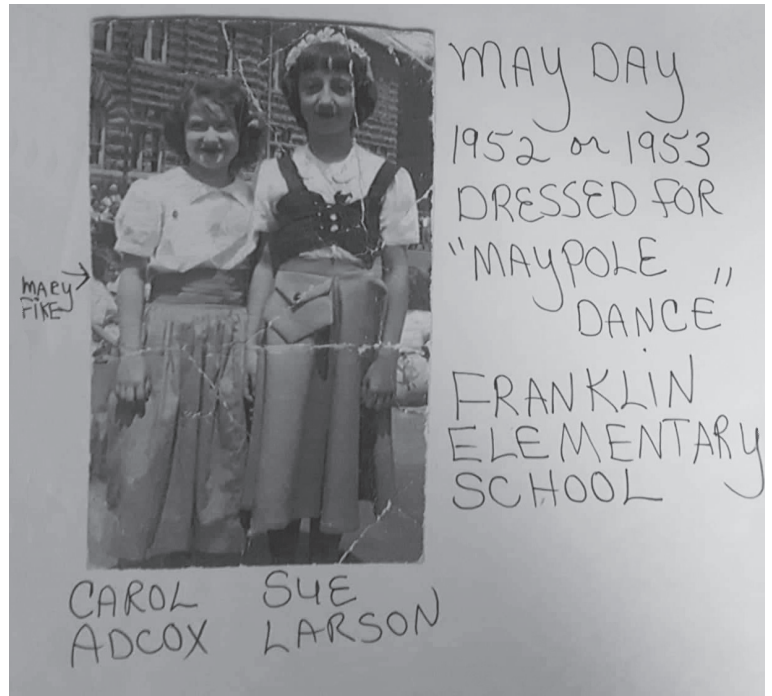 MAY DAY
1952 or 1953
DRESSED FOR
"MAYPOLE
DANCE"
FRANKLIN
ELEMENTARY
SCHOOL
MARY
FIKE
CAROL
ADCOX
SUE
LARSON